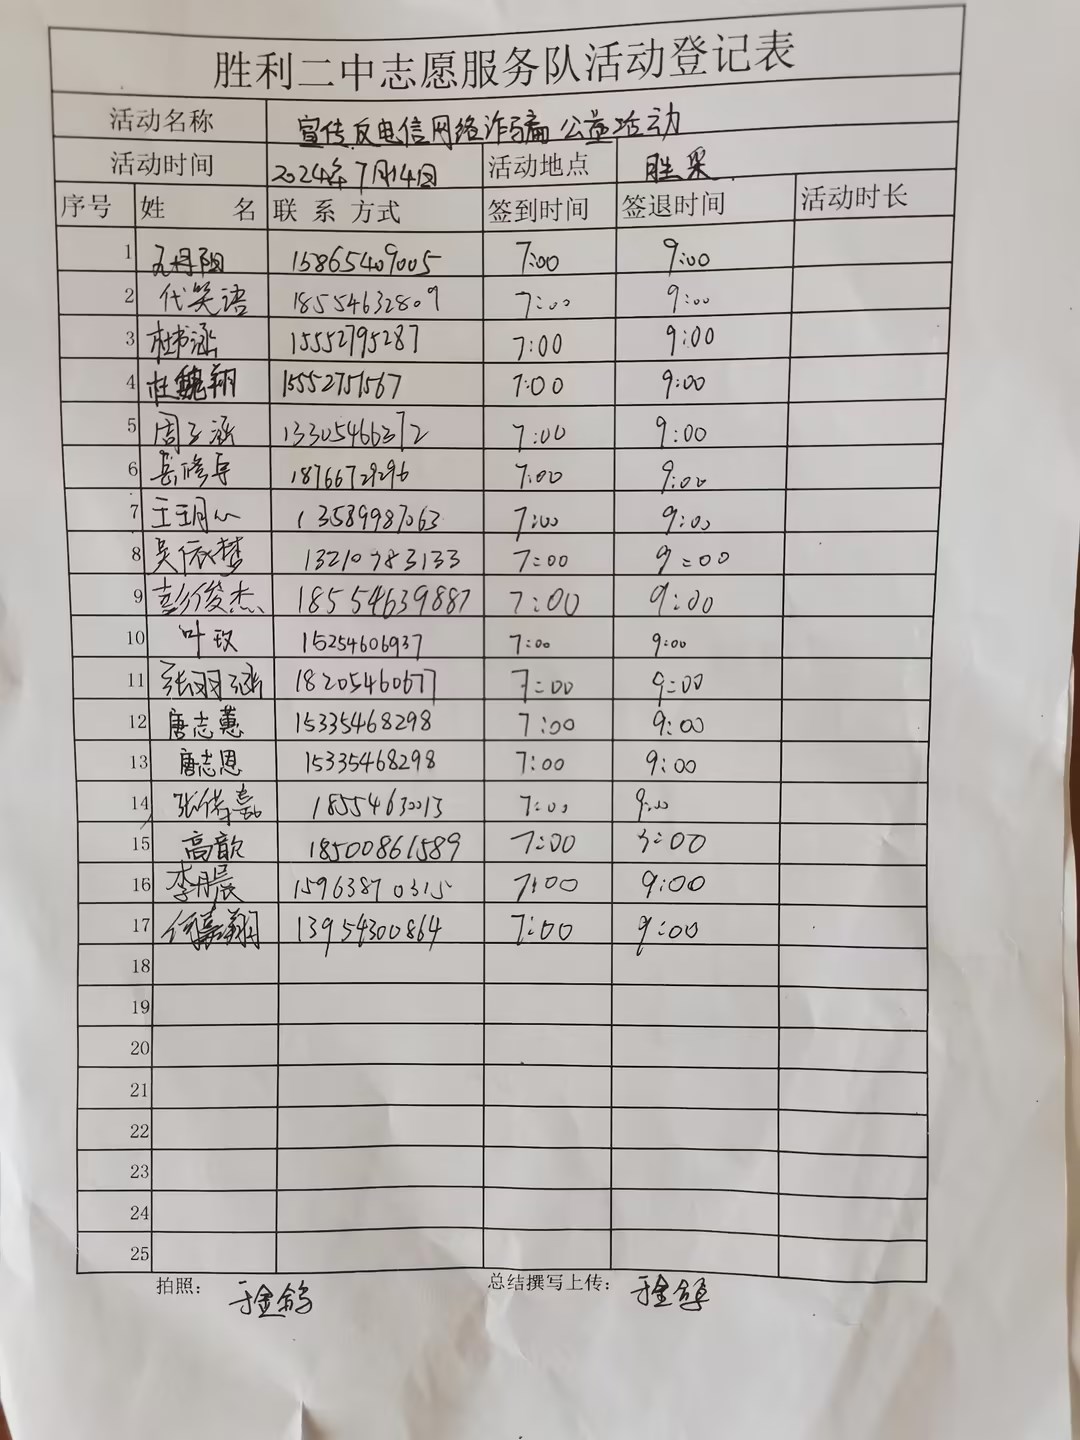 胜利二中志愿服务队活动登记表
活动名称 宣传反电信网络诈骗公益活动
活动时间 2024年7月14日 活动地点 胜采
序号 姓 名 联系方式 签到时间 签退时间 活动时长
1 15865409005 7:00 9:00
2 代笑语 18554632809 7:00 9:00
3 杜书涵 15552795287 7:00 9:00
4 杜魏翔 15552751567 7:00 9:00
5 周子涵 13305466372 7:00 9:00
6 岳修宇 18766729296 7:00 9:00
7 王玥心 13589987063 7:00 9:00
8 吴依梦 13210783133 7:00 9:00
9 彭俊杰 18554639887 7:00 9:00
10 叶玫 15254606937 7:00 9:00
11 张羽涵 18205460677 7:00 9:00
12 唐志蕙 15335468298 7:00 9:00
13 唐志恩 15335468298 7:00 9:00
14 18554630013 7:00 9:00
15 高歆 18500861589 7:00 9:00
16 李晨 15963870315 7:00 9:00
17 何嘉翔 13954300864 7:00 9:00
18
19
20
21
22
23
24
25
拍照： 于金鸽 总结撰写上传：